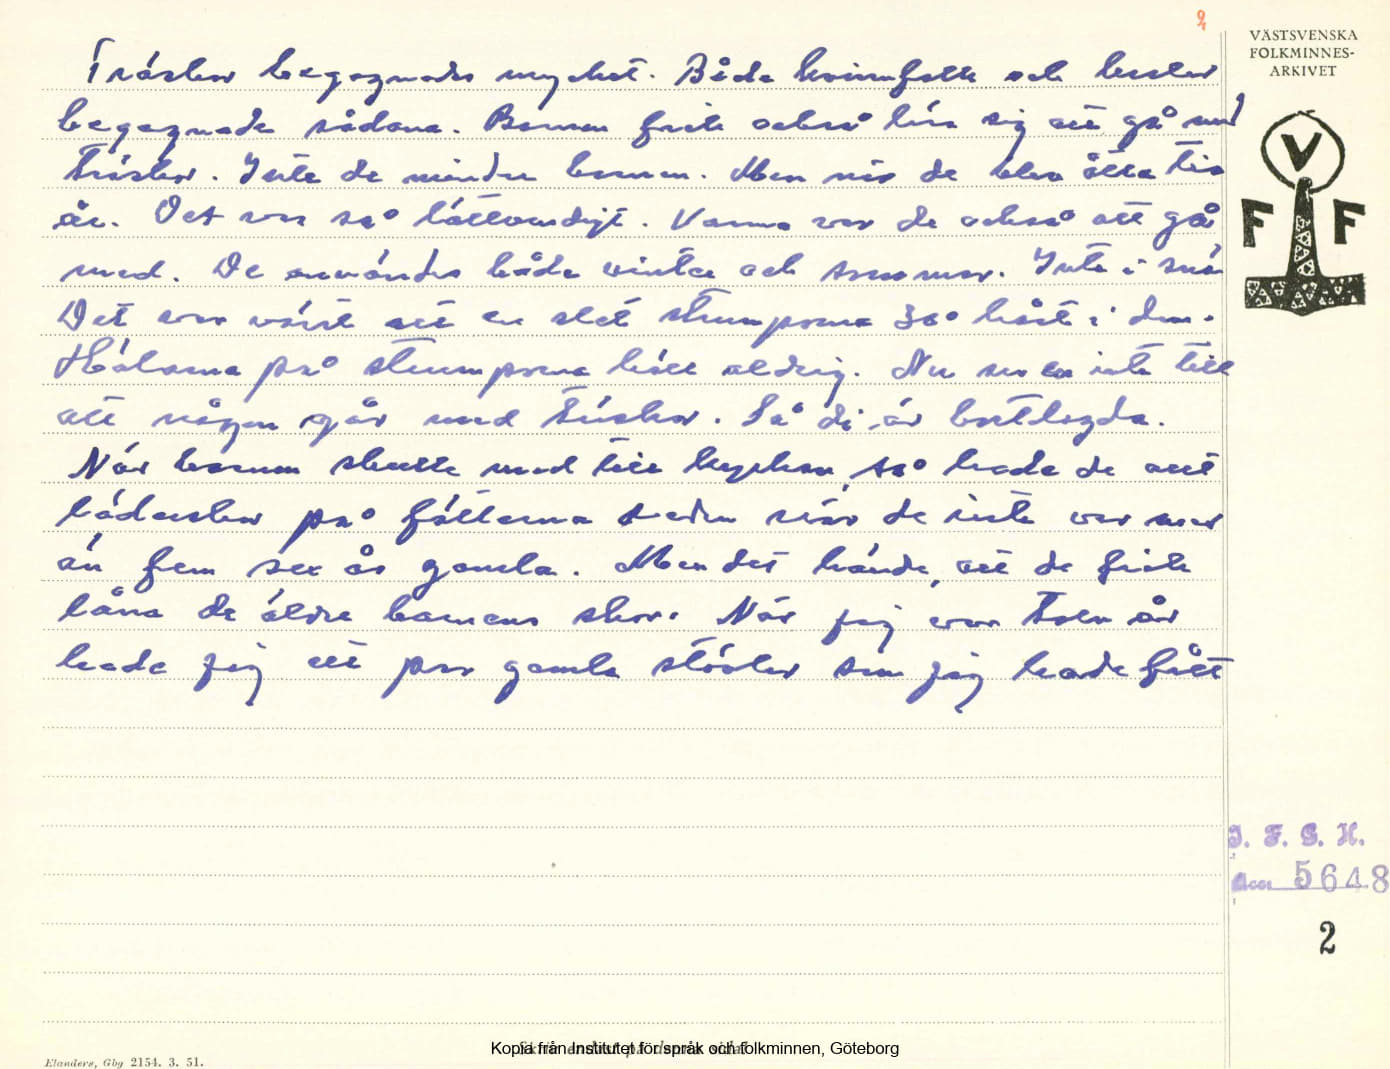 2
VÄSTSVENSKA
FOLKMINNES-
ARKIVET
V
F F
Träskor begagnades mycket. Både kvinnfolk och karlar
begagnade sådana. Barnen fick också lära sig att gå med
träskor. Inte de mindre barnen. Men när de blev åtta tio
år. Det var så lättvindigt. Varma var de också att gå
med. De användes både vinter och sommar. Inte i snö
Det var värst att en slet strumporna så hårt i dem.
Hälarna på strumporna höll aldrig. Nu ser en inte till
att någon går med träskor. Så di är bortlagda.
När barnen skulle med till kyrkan, så hade de allt
läderskor på fötterna sedan när de inte var mer
än fem sex år gamla. Men det hände, att de fick
låna de äldre barnens skor. När jag var tolv år
hade jag ett par gamla stövlar som jag hade fått
I. F. G. H.
Acc. 5648
2
Elanders, Gbg 2154. 3. 51.
Kopia från Institutet för språk och folkminnen, Göteborg